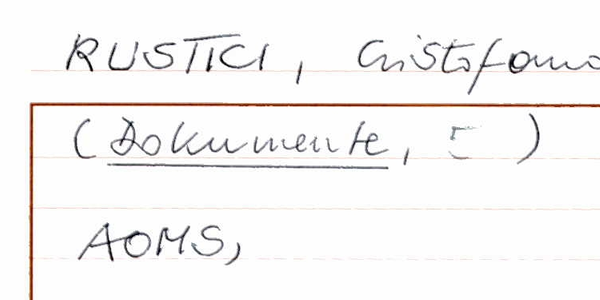 RUSTICI, Cristofano
(Dokumente, )
AOMS,